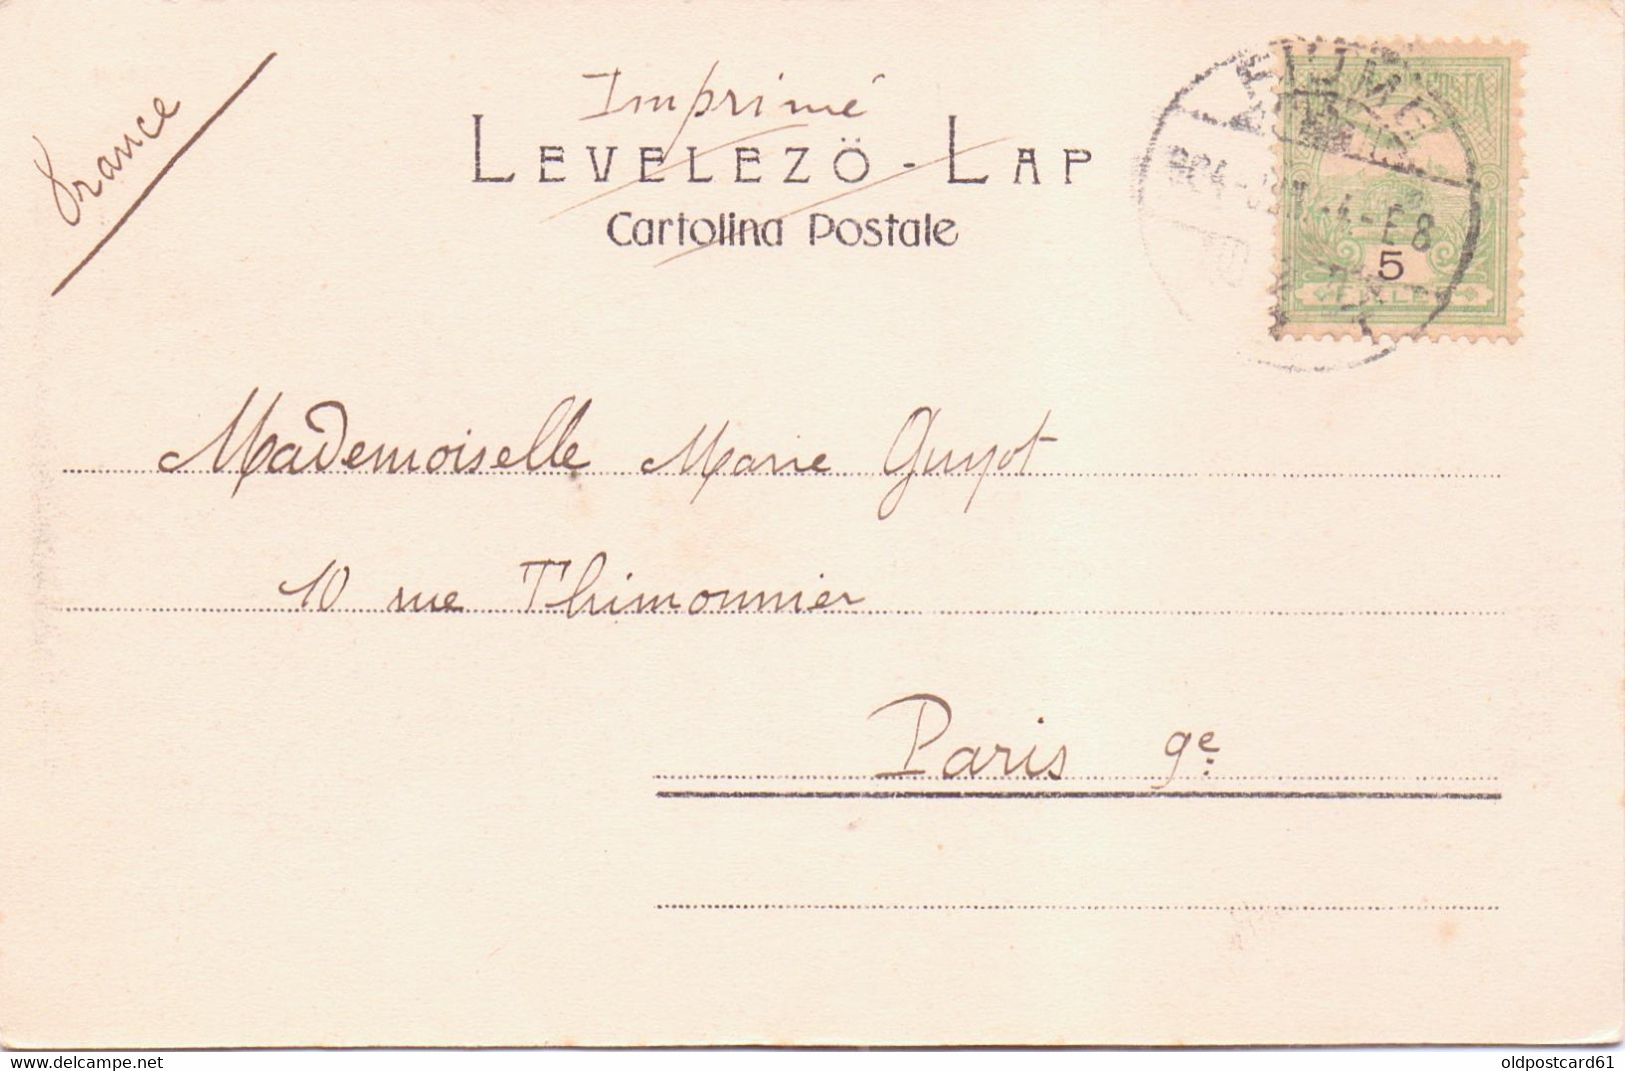 France
Imprimé
LEVELEZÖ-LAP
Cartolina Postale
FIUME
904
5
Mademoiselle Marie Guyot
10 rue Thimonnier
Paris 9e
delcampe.net
oldpostcard61